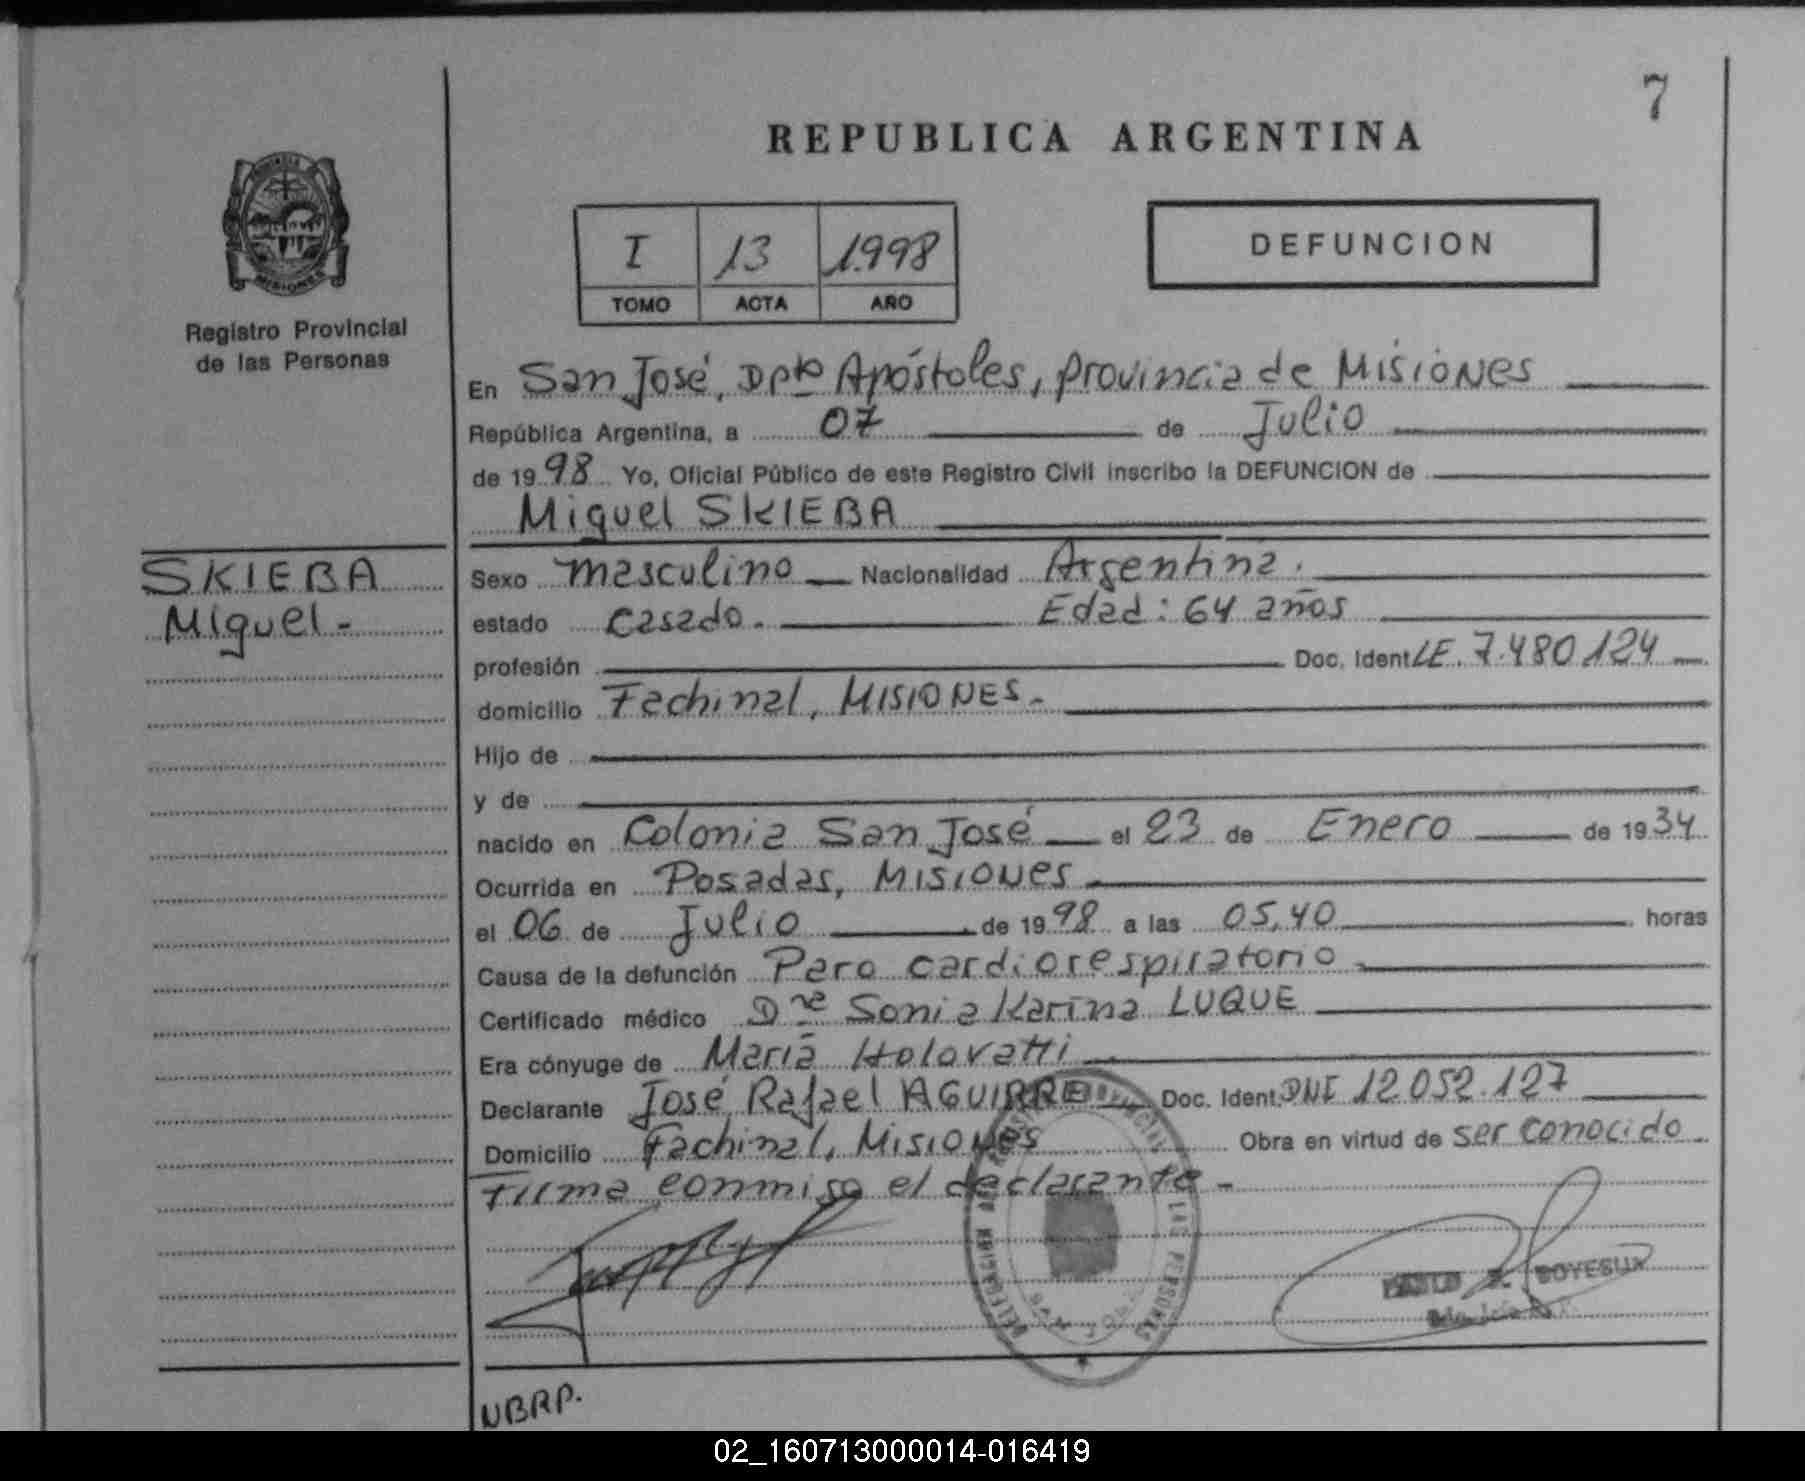 7
REPUBLICA ARGENTINA
PROVINCIA
MISIONES
Registro Provincial
de las Personas
I 13 1.998
TOMO ACTA AÑO
DEFUNCION
En San José, Dpto Apóstoles, provincia de Misiones
República Argentina, a 07 de Julio
de 1998 Yo, Oficial Público de este Registro Civil inscribo la DEFUNCION de
Miguel SKIEBA
SKIEBA
Miguel -
Sexo masculino Nacionalidad Argentina.
estado casado. Edad: 64 años
profesión Doc. Ident LE. 7.480124
domicilio Fachinal, MISIONES.
Hijo de
y de
nacido en Colonia San José el 23 de Enero de 1934
Ocurrida en Posadas, Misiones
el 06 de Julio de 1998 a las 05,40 horas
Causa de la defunción Paro cardiorespiratorio
Certificado médico Dra Sonia Karina LUQUE
Era cónyuge de María Holovatti
Declarante José Rafael AGUIRRE Doc. Ident. DNI 12.052.127
Domicilio Fachinal, Misiones Obra en virtud de ser conocido.
Firma conmigo el declarante -
DELEGACION DEL REGISTRO PROVINCIAL DE LAS PERSONAS
NBRP.
02_160713000014-016419